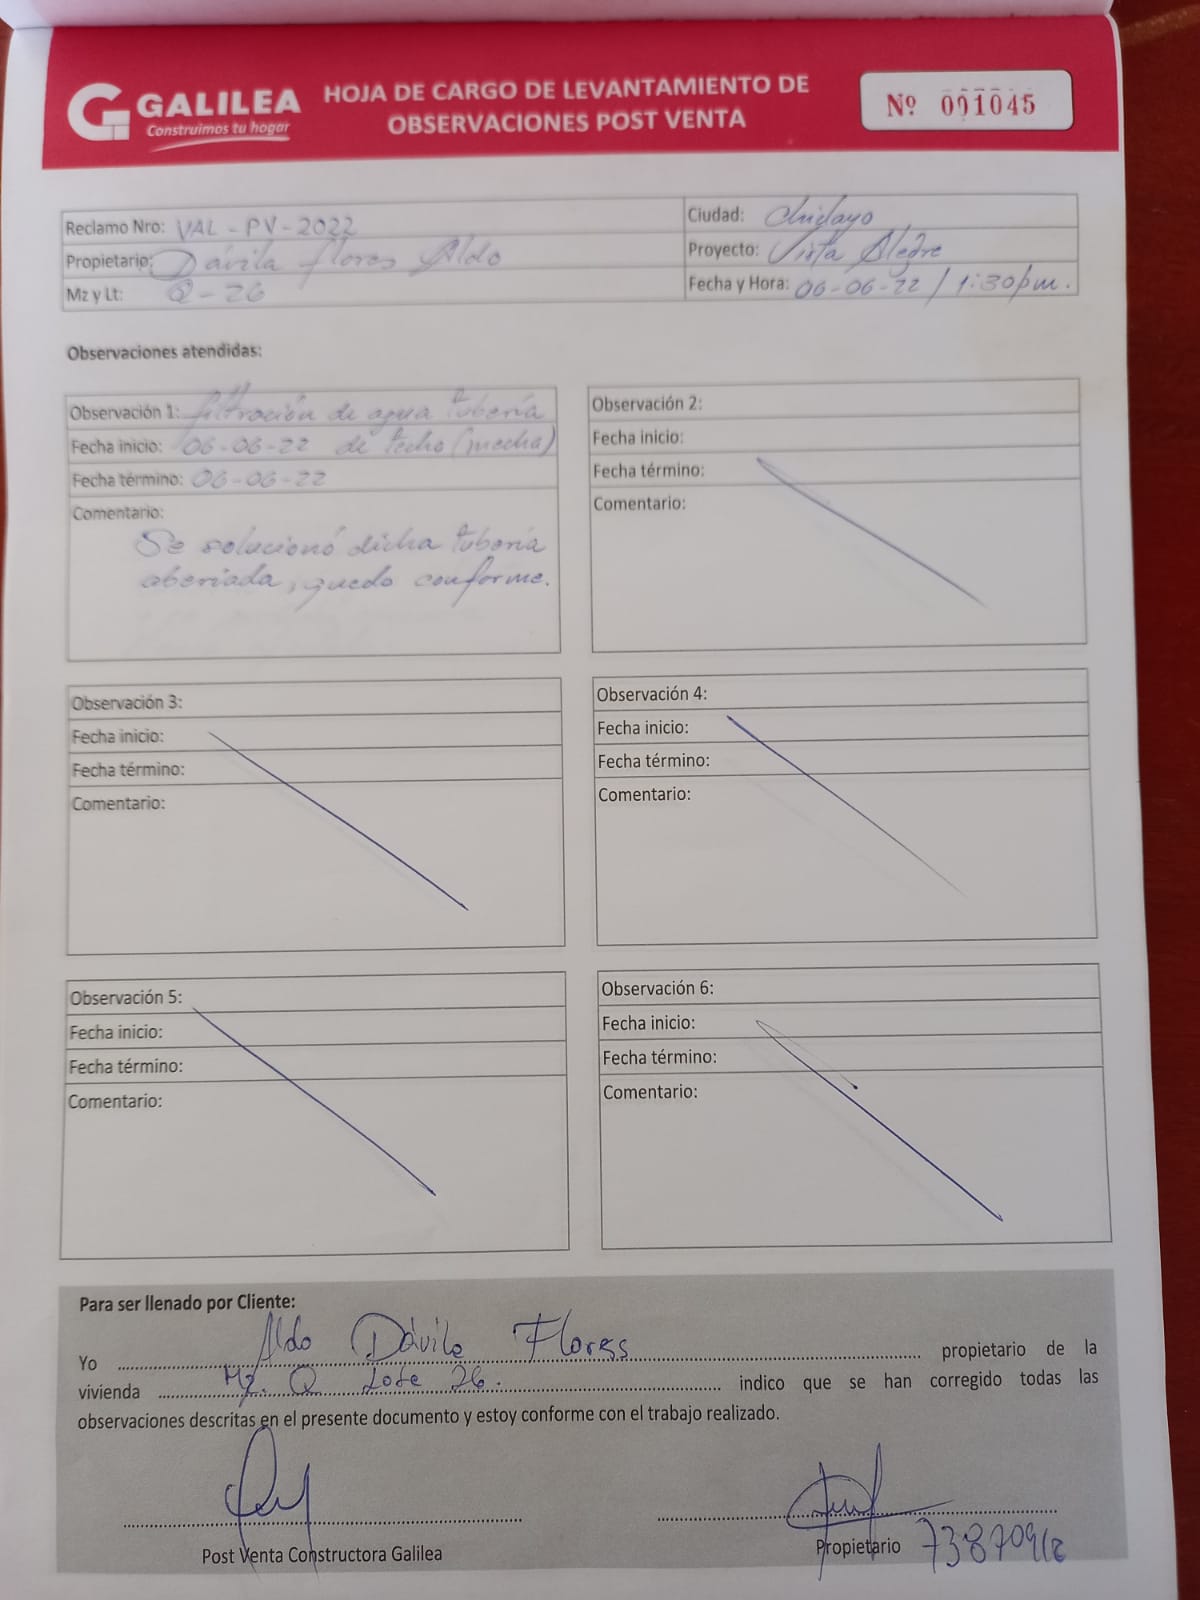 GALILEA
Construimos tu hogar
HOJA DE CARGO DE LEVANTAMIENTO DE
OBSERVACIONES POST VENTA
Nº 001045
Reclamo Nro: VAL - PV - 2022
Ciudad: Chiclayo
Propietario: Dávila Flores Aldo
Proyecto: Vista Alegre
Mz y Lt: Q - 26
Fecha y Hora: 06-06-22 / 1:30pm.
Observaciones atendidas:
Observación 1: filtración de agua tubería
Fecha inicio: 06-06-22 de techo (mecha)
Fecha término: 06-06-22
Comentario:
Se solucionó dicha tubería
aberiada, quedo conforme.
Observación 2:
Fecha inicio:
Fecha término:
Comentario:
Observación 3:
Fecha inicio:
Fecha término:
Comentario:
Observación 4:
Fecha inicio:
Fecha término:
Comentario:
Observación 5:
Fecha inicio:
Fecha término:
Comentario:
Observación 6:
Fecha inicio:
Fecha término:
Comentario:
Para ser llenado por Cliente:
Yo Aldo Dávila Flores propietario de la
vivienda Mz. Q Lote 26. indico que se han corregido todas las
observaciones descritas en el presente documento y estoy conforme con el trabajo realizado.
Post Venta Constructora Galilea
Propietario